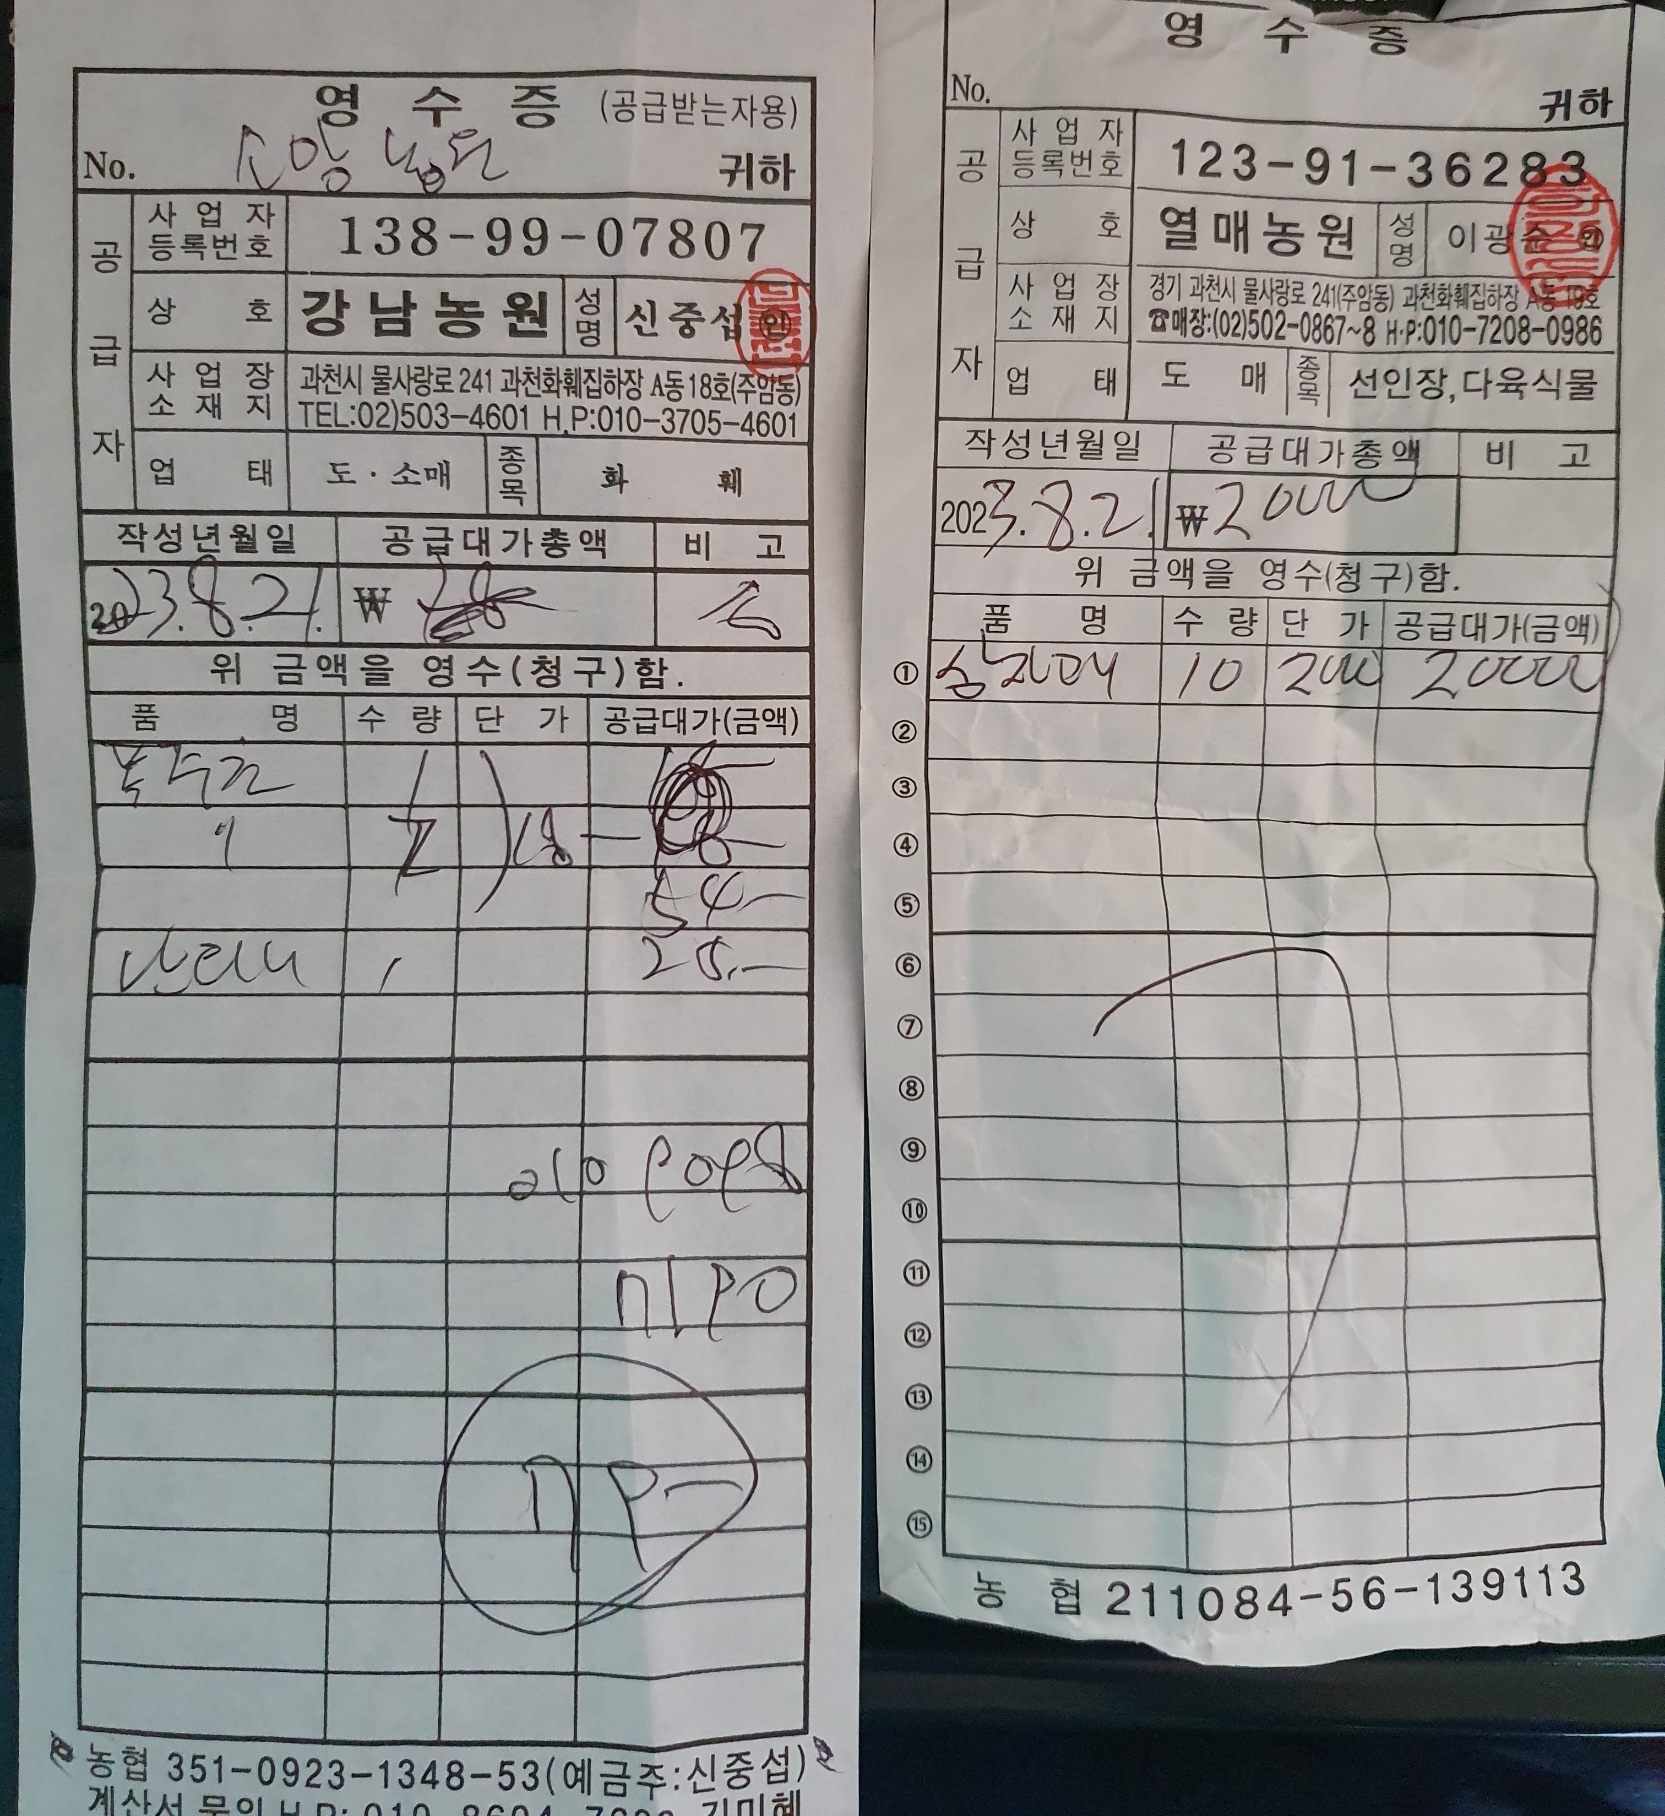 영 수 증 (공급받는자용)
No. 귀하
공급자
사업자등록번호 138-99-07807
상 호 강남농원 성명 신중섭 인
사업장소재지 과천시 물사랑로 241 과천화훼집하장 A동 18호(주암동)
TEL:02)503-4601 H.P:010-3705-4601
업 태 도·소매 종목 화 훼
작성년월일 공급대가총액 비 고
2023.8.21. ₩
위 금액을 영수(청구)함.
품 명 수 량 단 가 공급대가(금액)
18-
54-
28.-
농협 351-0923-1348-53(예금주:신중섭)
영 수 증
No. 귀하
공급자
사업자등록번호 123-91-36283
상 호 열매농원 성명 이광 인
사업장소재지 경기 과천시 물사랑로 241(주암동) 과천화훼집하장 A동 19호
☎매장:(02)502-0867~8 H·P:010-7208-0986
업 태 도 매 종목 선인장,다육식물
작성년월일 공급대가총액 비 고
2023.8.21 ₩20000
위 금액을 영수(청구)함.
품 명 수 량 단 가 공급대가(금액)
① 10 2000 20000
②
③
④
⑤
⑥
⑦
⑧
⑨
⑩
⑪
⑫
⑬
⑭
⑮
농 협 211084-56-139113